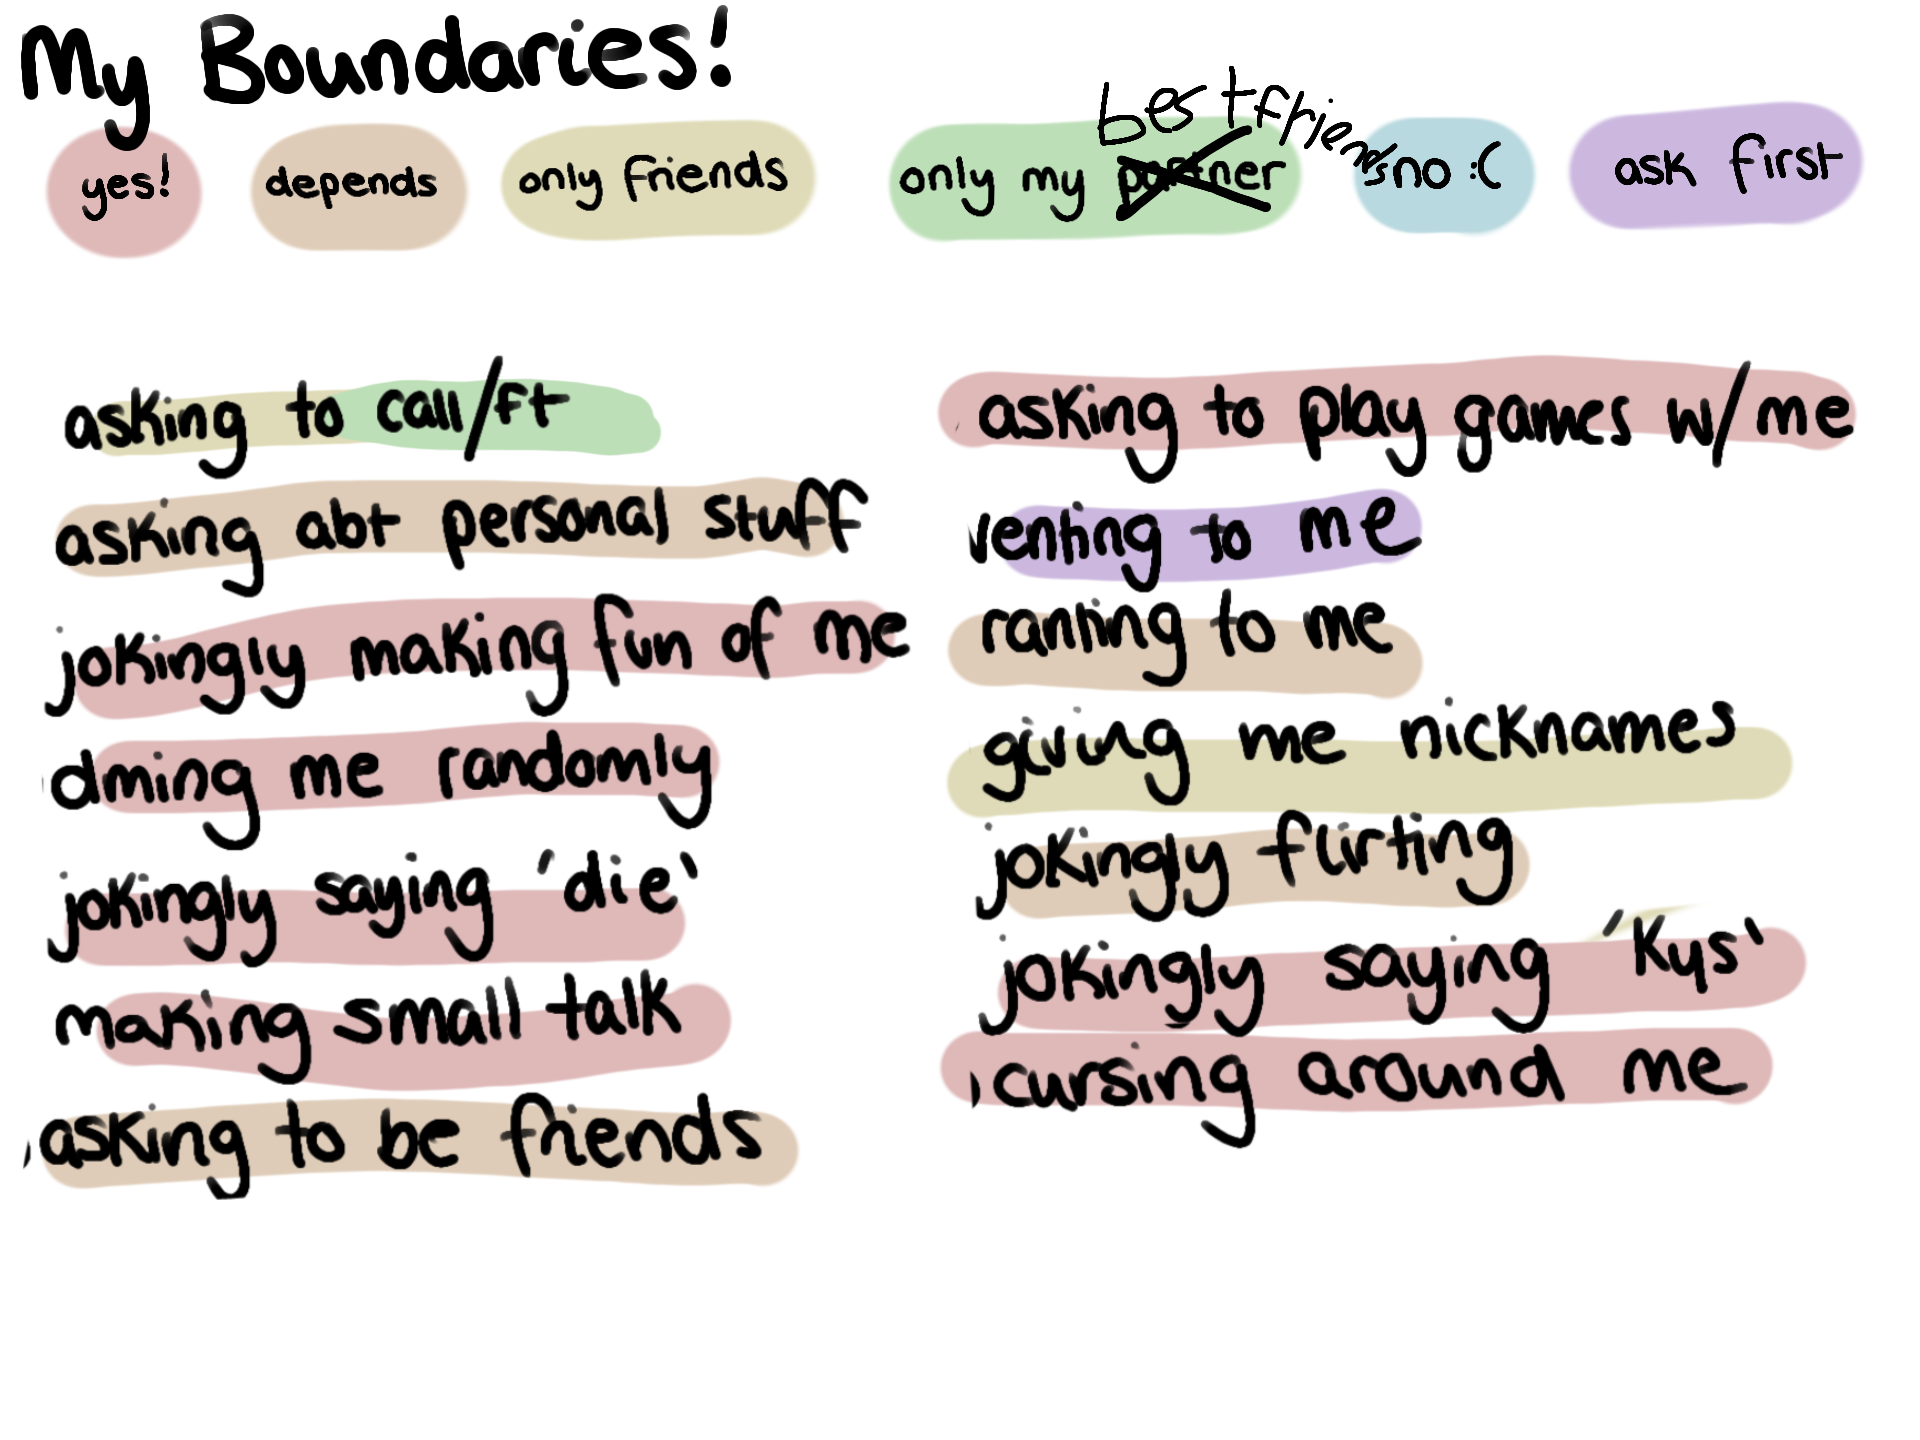 My Boundaries!
best friends
yes! depends only friends only my partner no :( ask first
asking to call/ft
asking abt personal stuff
jokingly making fun of me
dming me randomly
jokingly saying 'die'
making small talk
asking to be friends
asking to play games w/ me
venting to me
ranting to me
giving me nicknames
jokingly flirting
jokingly saying 'kys'
cursing around me